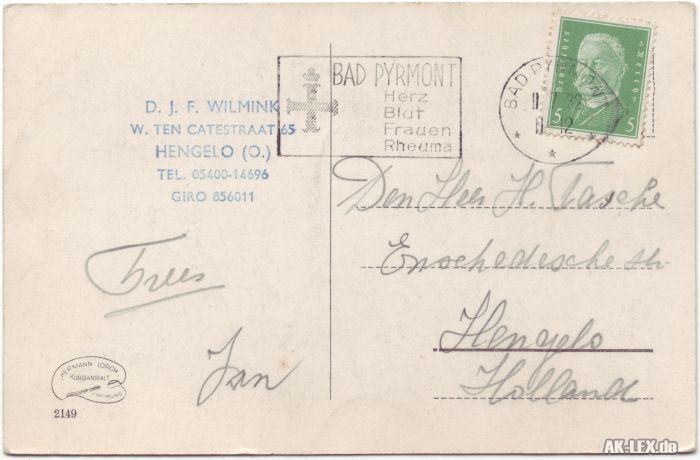 D. J. F. WILMINK
W. TEN CATESTRAAT 65
HENGELO (O.)
TEL. 05400-14696
GIRO 856011
BAD PYRMONT
Herz
Blut
Frauen
Rheuma
BAD PYRMONT
32
12
Deutsches
Reich
5 5
Den Heer H. Tasche
Enschedesche str.
Hengelo
Holland
Trees
Jan
HERMANN LORCH
KUNSTANSTALT
DORTMUND
2149
AK-LEX.de